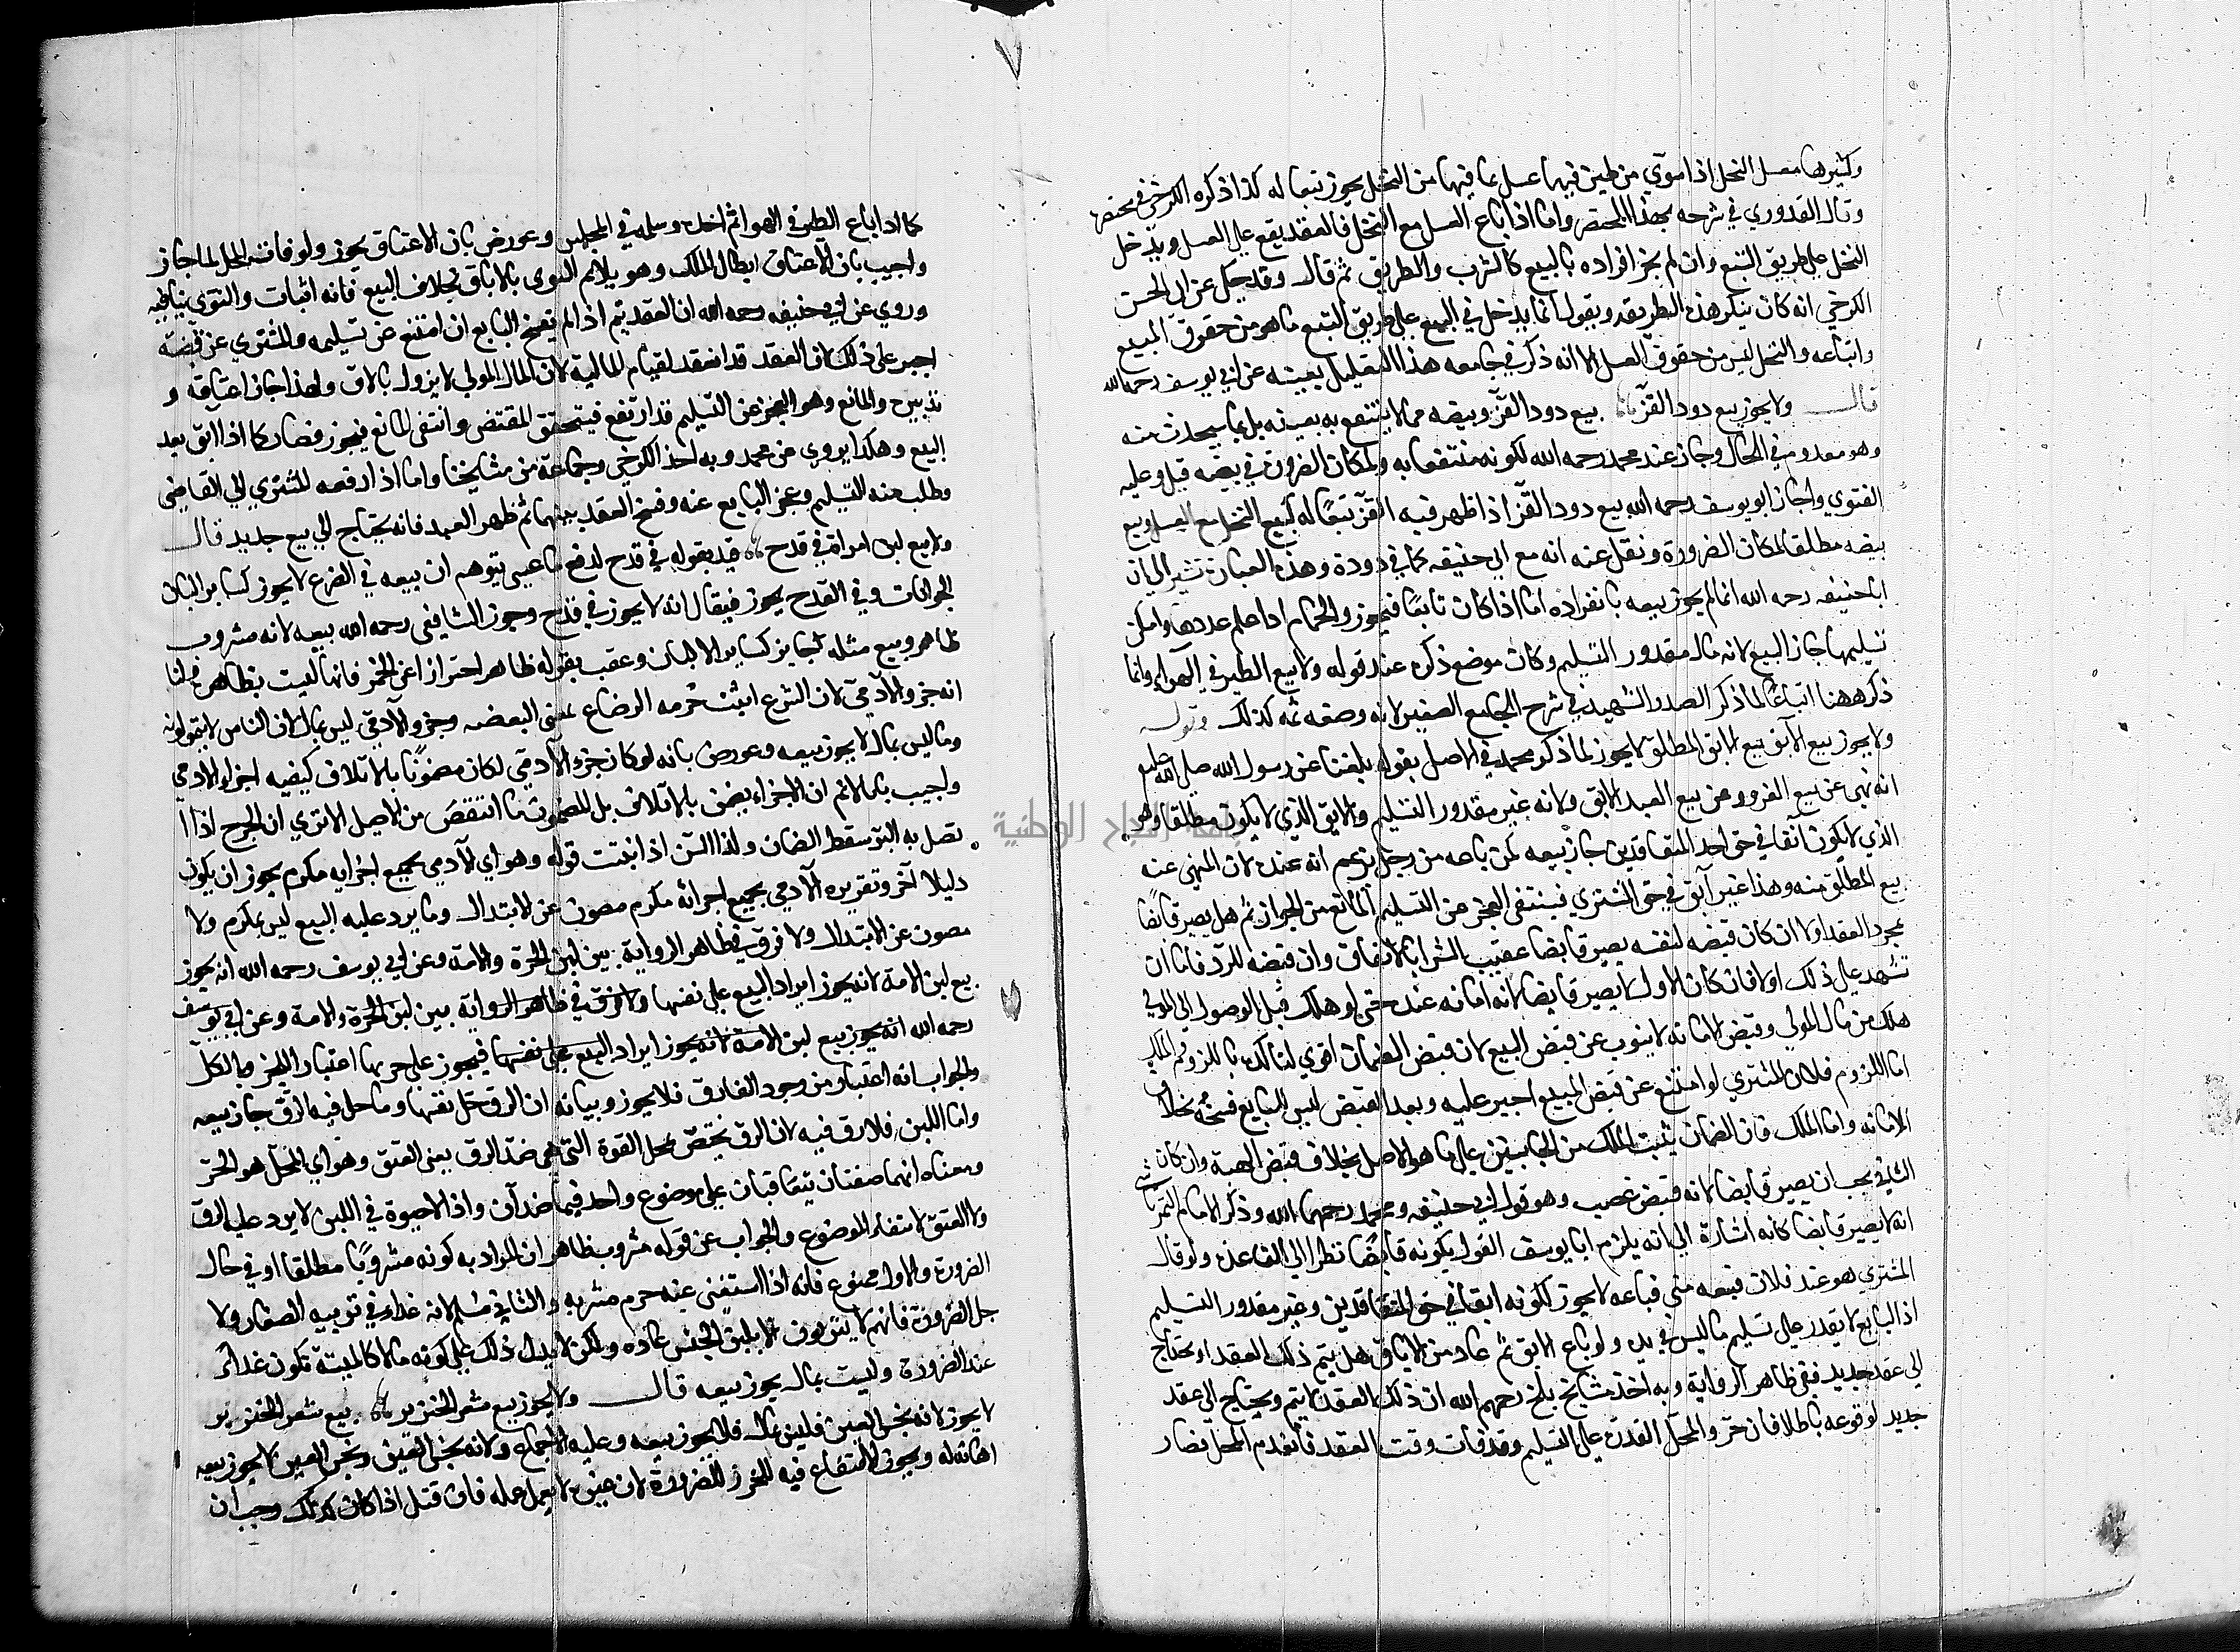 وكثيرها معسل النحل اذا سوي من طين فيها عسل بما فيها من النحل يجوز تبعا له كذا ذكره الكرخي في مختصره
وقال القدوري في شرحه بهذا المختصر واما اذا باع العسل مع النحل فالعقد يقع على العسل ويدخل
النحل على طريق التبع وان لم يجز افراده بالبيع كالشرب والطريق ثم قال وقد حكي عن ابي الحسن
الكرخي انه كان ينكر هذه الطريقه ويقول انما يدخل في البيع على طريق التبع ما هو من حقوق المبيع
واتباعه والنحل ليس من حقوق العسل الا انه ذكر في جامعه هذا التعليل بعينه عن ابي يوسف رحمه الله
قال ولا يجوز بيع دود القز بيع دود القز وبيضه مما لا ينتفع به بعينه بل بما سيحدث منه
وهو معدوم في الحال وجاز عند محمد رحمه الله لكونه منتفعا به ولمكان الضرورة في بيضه قيل وعليه
الفتوي واجاز ابو يوسف رحمه الله بيع دود القز اذا ظهر فيه القز تبعا له كبيع النحل مع العسل وبيع
بيضه مطلقا لمكان الضرورة ونقل عنه انه مع ابي حنيفه كما في دودة وهذه العبارة تشير الي ان
ابا حنيفه رحمه الله انما لم يجوز بيعه بانفراده اما اذا كان تابعا فيجوز والحمام اذا علم عددها وامكن
تسليمها جاز البيع لانه مال مقدور التسليم وكان موضع ذكره عند قوله ولا بيع الطير في الهواء وانما
ذكرههنا اتباعا لما ذكر الصدر الشهيد في شرح الجامع الصغير لانه وضعه ثمه كذلك وقوله
ولا يجوز بيع الآبق بيع الابق المطلق لا يجوز لما ذكر محمد في الاصل بقوله بلغنا عن رسول الله صلى الله عليه
انه نهى عن بيع الغرر وعن بيع العبد الابق ولانه غير مقدور التسليم والابق الذي لا يكون مطلقا وهو
الذي لا يكون آبقا في حق احد المتعاقدين جاز بيعه كمن باعه من رجل يزعم انه عنده لان المنهي عنه
بيع المطلق منه وهذا غير آبق في حق المشتري فينتفي العجز عن التسليم المانع من الجواز ثم هل يصير قابضا
بمجرد العقد او لا ان كان قبضه لنفسه يصير قابضا عقيب الشراء بالاتفاق وان قبضه للرد فاما ان
تشهد على ذلك او لا فان كان الاول لا يصير قابضا لانه امانه عنده حتى لو هلك قبل الوصول الى المولي
هلك من مال المولي وقبض الامانه لا ينوب عن قبض البيع لان قبض الضمان اقوي لتاكده باللزوم والملك
اما اللزوم فلان المشتري لو امتنع عن قبض المبيع اجبر عليه وبعد القبض ليس للبايع فسخه بخلاف
الامانه واما الملك فان الضمان يثبت الملك من الجانبين على ما هو الاصل بخلاف قبض الهبة وان كان
الثاني يجب ان يصير قابضا لانه قبض غصب وهو قول ابي حنيفه ومحمد رحمهما الله وذكر الامام التمرتاشي
انه لا يصير قابضا كانه اشارة الي انه يلزم ابا يوسف القول بكونه قابضا نظرا الي القاعدة ولو قال
المشتري هو عند فلان فبعه مني فباعه لا يجوز لكونه ابقا في حق المتعاقدين وغير مقدور التسليم
اذ البايع لا يقدر على تسليم ما ليس في يده ولو باع الابق ثم عاد من الاباق هل يتم ذلك العقد او يحتاج
الى عقد جديد ففي ظاهر الرواية وبه اخذ مشايخ بلخ رحمهم الله ان ذلك العقد لا يتم ويحتاج الي عقد
جديد لوقوعه باطلا فان حر والمحل القدرة على التسليم وقد فات وقت العقد فانعدم المحل فصار
كما اذا باع الطير في الهواء ثم اخذه وسلمه في المجلس وعورض بان الاعتاق يجوز ولو فات المحل لما جاز
واجيب بان الاعتاق ابطال الملك وهو يلايم التوى بالاباق بخلاف البيع فانه اثبات والتوى ينافيه
وروي عن ابي حنيفه رحمه الله ان العقد يتم اذا لم يفسخ البايع ان امتنع عن تسليمه والمشتري عن قبضه
اجبر على ذلك لان العقد قد انعقد لقيام المالية لان المال المولي لا يزول بالاباق ولهذا جاز اعتاقه و
تدبيره والمانع وهو العجز عن التسليم قد ارتفع فيتحقق المقتضي وانتفى المانع فيجوز فصار كما اذا ابق بعد
البيع وهكذا يروي عن محمد وبه اخذ الكرخي وجماعة من مشايخنا واما اذا رفعه المشتري الي القاضي
وطلب منه التسليم وعجز البايع عنه وفسخ العقد بينهما ثم ظهر العبد فانه يحتاج الي بيع جديد قال
ولا بيع لبن امراة في قدح قيد بقوله في قدح لدفع ما عسى يتوهم ان بيعه في الضرع لا يجوز كساير البان
الحيوانات وفي القدح يجوز فيقال انه لا يجوز في قدح وجوز الشافعي رحمه الله بيعه لانه مشروب
طاهر وبيع مثله جايز كساير الالبان وعقب بقوله طاهر احترازا عن الخمر فانها ليست بطاهرة ولنا
انه جزو الآدمي لان الشرع اثبت حرمه الرضاع لمعنى البعضيه وجزو الآدمي ليس بمال لان الناس لا يتمولونه
وما ليس بمال لا يجوز بيعه وعورض بانه لو كان جزء الآدمي لكان مضمونا بالاتلاف كبقيه اجزاء الادمي
واجيب بانا لا نم ان الاجزاء يضمن بالاتلاف بل المضمون ما انتقص من الاصل الا تري ان الجرح اذا ا
تصل به البرء سقط الضمان وكذا السن اذا نبتت قوله وهو اي الآدمي بجميع اجزايه مكرم يجوز ان يكون
دليلا آخر وتقريره الآدمي بجميع اجزائه مكرم مصون عن الابتذال وما يرد عليه البيع ليس بمكرم ولا
مصون عن الابتذال ولا فرق في ظاهر الرواية بين لبن الحرة والامة وعن ابي يوسف رحمه الله انه يجوز
بيع لبن الامة لانه يجوز ايراد البيع على نفسها ولا فرق في ظاهر الرواية بين لبن الحرة والامة وعن ابي يوسف
رحمه الله انه يجوز بيع لبن الامة لانه يجوز ايراد البيع على نفسها فيجوز على جزيها اعتبارا للجزء بالكل
والجواب انه اعتبار من وجود الفارق فلا يجوز وبيانه ان الرق حل نفسها وما حل فيه الرق جاز بيعه
واما اللبن فلا رق فيه لان الرق يختص بمحل القوة التي هي ضد الرق يعني العتق وهو اي المحل هو الحي
ومعناه انهما صفتان يتعاقبان على موضوع واحد فهما ضدان واذ لا حيوة في اللبن لا يرد عليه الرق
ولا العتق لانتفاء الموضوع والجواب عن قوله مشروب طاهر ان المراد به كونه مشروبا مطلقا او في حال
الضرورة والاول ممنوع فانه اذا استغني عنه حرم شربه والثاني مسلم لانه غذاء في تربيه الصغار ولا
جل الضرورة فانهم لا يتربون الا بلبن الجنس عادة ولكن لا يدل ذلك على كونه مالا كالميتة تكون غذاء
عند الضرورة وليست بمال يجوز بيعه قال ولا يجوز بيع شعر الخنزير بيع شعر الخنزير
لا يجوز لانه نجس العين فليس بمال فلا يجوز بيعه وعليه الاجماع ولانه نجس العين ونجس العين لا يجوز بيعه
اهانة له ويجوز الانتفاع فيه للخرز للضرورة لان غيره لا يعمل عمله فان قيل اذا كان كذلك وجب ان